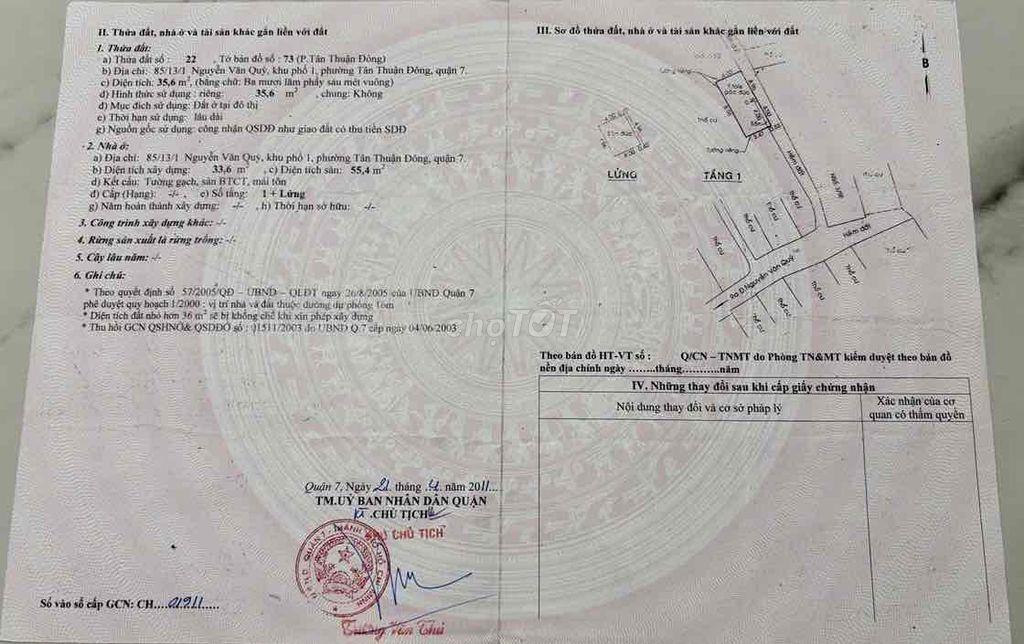 II. Thửa đất, nhà ở và tài sản khác gắn liền với đất
1. Thửa đất:
a) Thửa đất số: 22 , Tờ bản đồ số: 73 (P.Tân Thuận Đông)
b) Địa chỉ: 85/13/1 Nguyễn Văn Quỳ, khu phố 1, phường Tân Thuận Đông, quận 7.
c) Diện tích: 35,6 m², (bằng chữ: Ba mươi lăm phẩy sáu mét vuông)
d) Hình thức sử dụng: riêng: 35,6 m² , chung: Không
đ) Mục đích sử dụng: Đất ở tại đô thị
e) Thời hạn sử dụng: lâu dài
g) Nguồn gốc sử dụng: công nhận QSDĐ như giao đất có thu tiền SDĐ
2. Nhà ở:
a) Địa chỉ: 85/13/1 Nguyễn Văn Quỳ, khu phố 1, phường Tân Thuận Đông, quận 7.
b) Diện tích xây dựng: 33,6 m² , c) Diện tích sàn: 55,4 m²
d) Kết cấu: Tường gạch, sàn BTCT, mái tôn
đ) Cấp (Hạng): -/- , e) Số tầng: 1 + Lửng
g) Năm hoàn thành xây dựng: -/- , h) Thời hạn sở hữu: -/-
3. Công trình xây dựng khác: -/-
4. Rừng sản xuất là rừng trồng: -/-
5. Cây lâu năm: -/-
6. Ghi chú:
* Theo quyết định số 57/2005/QĐ – UBND – QLĐT ngày 26/8/2005 của UBND Quận 7
phê duyệt quy hoạch 1/2000 : vị trí nhà và đất thuộc đường dự phóng 16m
* Diện tích đất nhỏ hơn 36 m² sẽ bị khống chế khi xin phép xây dựng
* Thu hồi GCN QSHNỞ& QSDĐỞ số : 01511/2003 do UBND Q.7 cấp ngày 04/06/2003
Quận 7, Ngày 21 tháng 4 năm 2011
TM.UỶ BAN NHÂN DÂN QUẬN
KT.CHỦ TỊCH
PHÓ CHỦ TỊCH
Trương Văn Thi
Số vào sổ cấp GCN: CH....01911.....
III. Sơ đồ thửa đất, nhà ở và tài sản khác gắn liền với đất
B
Tường riêng
Thổ cư
Tường riêng
LỬNG
TẦNG 1
Hẻm đất
Thổ cư
Thổ cư
Thổ cư
Thổ cư
Hẻm đất
Ra Đ.Nguyễn Văn Quỳ
Thổ cư
Thổ cư
Thổ cư
chợTỐT
Theo bản đồ HT-VT số : Q/CN – TNMT do Phòng TN&MT kiểm duyệt theo bản đồ
nền địa chính ngày ........tháng...........năm
IV. Những thay đổi sau khi cấp giấy chứng nhận
Nội dung thay đổi và cơ sở pháp lý
Xác nhận của cơ
quan có thẩm quyền